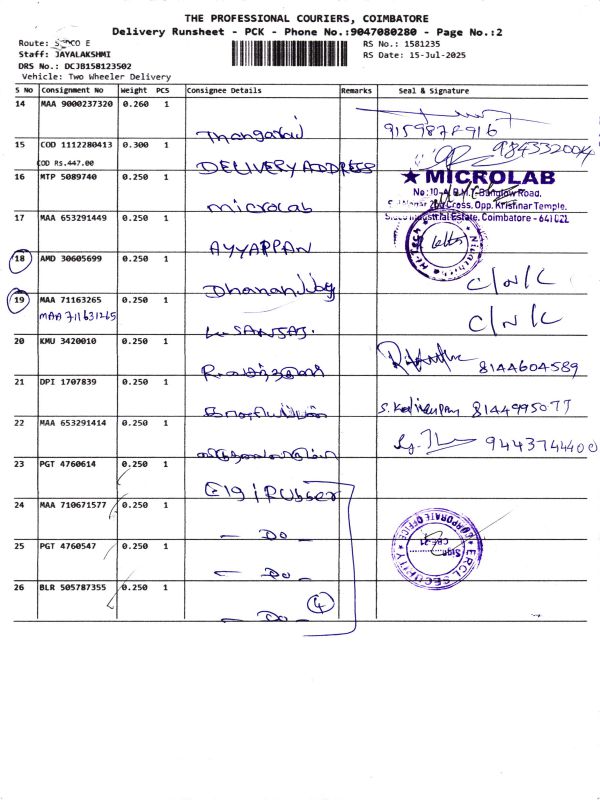 THE PROFESSIONAL COURIERS, COIMBATORE
Delivery Runsheet - PCK - Phone No.:9047080280 - Page No.:2
Route: SIDCO E
RS No.: 1581235
Staff: JAYALAKSHMI
RS Date: 15-Jul-2025
DRS No.: DCJB158123502
Vehicle: Two Wheeler Delivery
S No Consignment No Weight PCS Consignee Details Remarks Seal & Signature
14 MAA 9000237320 0.260 1
Thangaraj
15 COD 1112280413 0.300 1 984332004
COD RS.447.00
DELIVERY ADDRESS
16 MTP 5089740 0.250 1
microlab
★ MICROLAB
Cross, Opp. Krishnar Temple,
Industrial Estate, Coimbatore - 641 021.
17 MAA 653291449 0.250 1
AYYAPPAN
18 AMD 30605699 0.250 1
C/N/C
19 MAA 71163265 0.250 1
MAA 711631265
C/N/C
20 KMU 3420010 0.250 1
8144604589
21 DPI 1707839 0.250 1
8144995077
22 MAA 653291414 0.250 1
9443744400
23 PGT 4760614 0.250 1
Elgi Rubber
24 MAA 710671577 0.250 1
— Do —
25 PGT 4760547 0.250 1
— Do —
26 BLR 505787355 0.250 1
— Do —
4
ERCL SECURITY
CORPORATE OFFICE
Sign